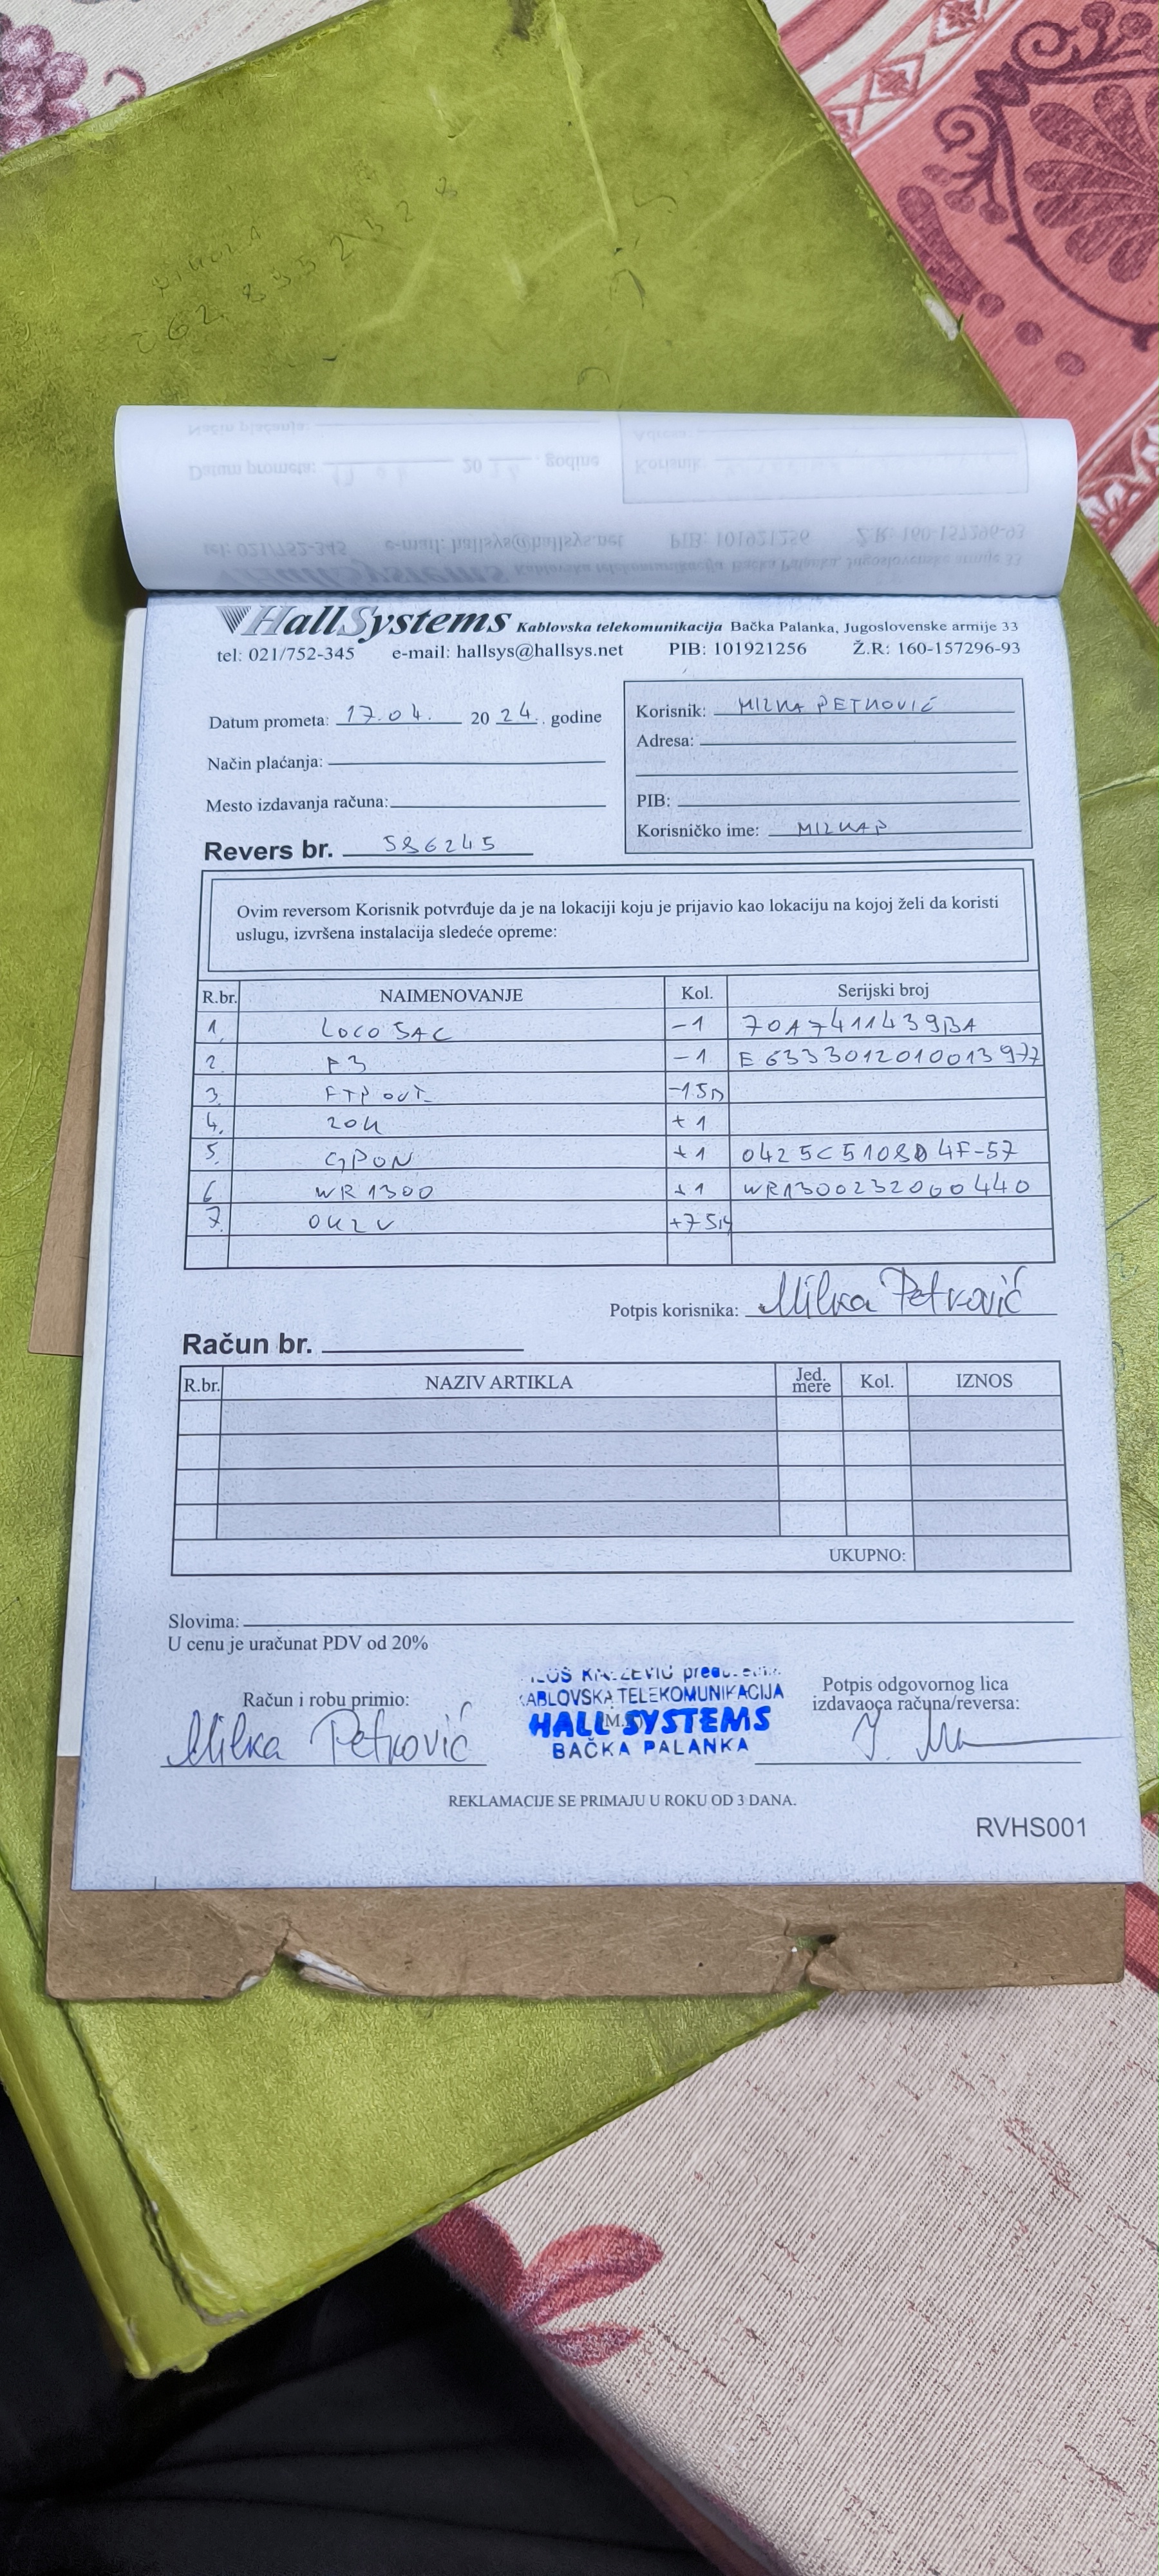 062 8952328
HallSystems Kablovska telekomunikacija Bačka Palanka, Jugoslovenske armije 33
tel: 021/752-345 e-mail: hallsys@hallsys.net PIB: 101921256 Ž.R: 160-157296-93
Datum prometa: 17.04. 2024. godine
Način plaćanja:
Mesto izdavanja računa:
Korisnik: MILKA PETKOVIĆ
Adresa:
PIB:
Korisničko ime: MILKAP
Revers br. 586245
Ovim reversom Korisnik potvrđuje da je na lokaciji koju je prijavio kao lokaciju na kojoj želi da koristi
uslugu, izvršena instalacija sledeće opreme:
R.br. NAIMENOVANJE Kol. Serijski broj
1. LOCO 5AC -1 70A7411439BA
2. P3 -1 E6333012010013977
3. FTP OUT -15m
4. ZOK +1
5. GPON +1 0425C5108D4F-57
6 WR1300 +1 WR1300232000440
7. OK2V +75m
Potpis korisnika: Milka Petković
Račun br.
R.br. NAZIV ARTIKLA Jed. mere Kol. IZNOS
UKUPNO:
Slovima:
U cenu je uračunat PDV od 20%
Račun i robu primio:
Milka Petković
KABLOVSKA TELEKOMUNIKACIJA
HALL SYSTEMS
BAČKA PALANKA
(M.P.)
Potpis odgovornog lica
izdavaoca računa/reversa:
REKLAMACIJE SE PRIMAJU U ROKU OD 3 DANA.
RVHS001